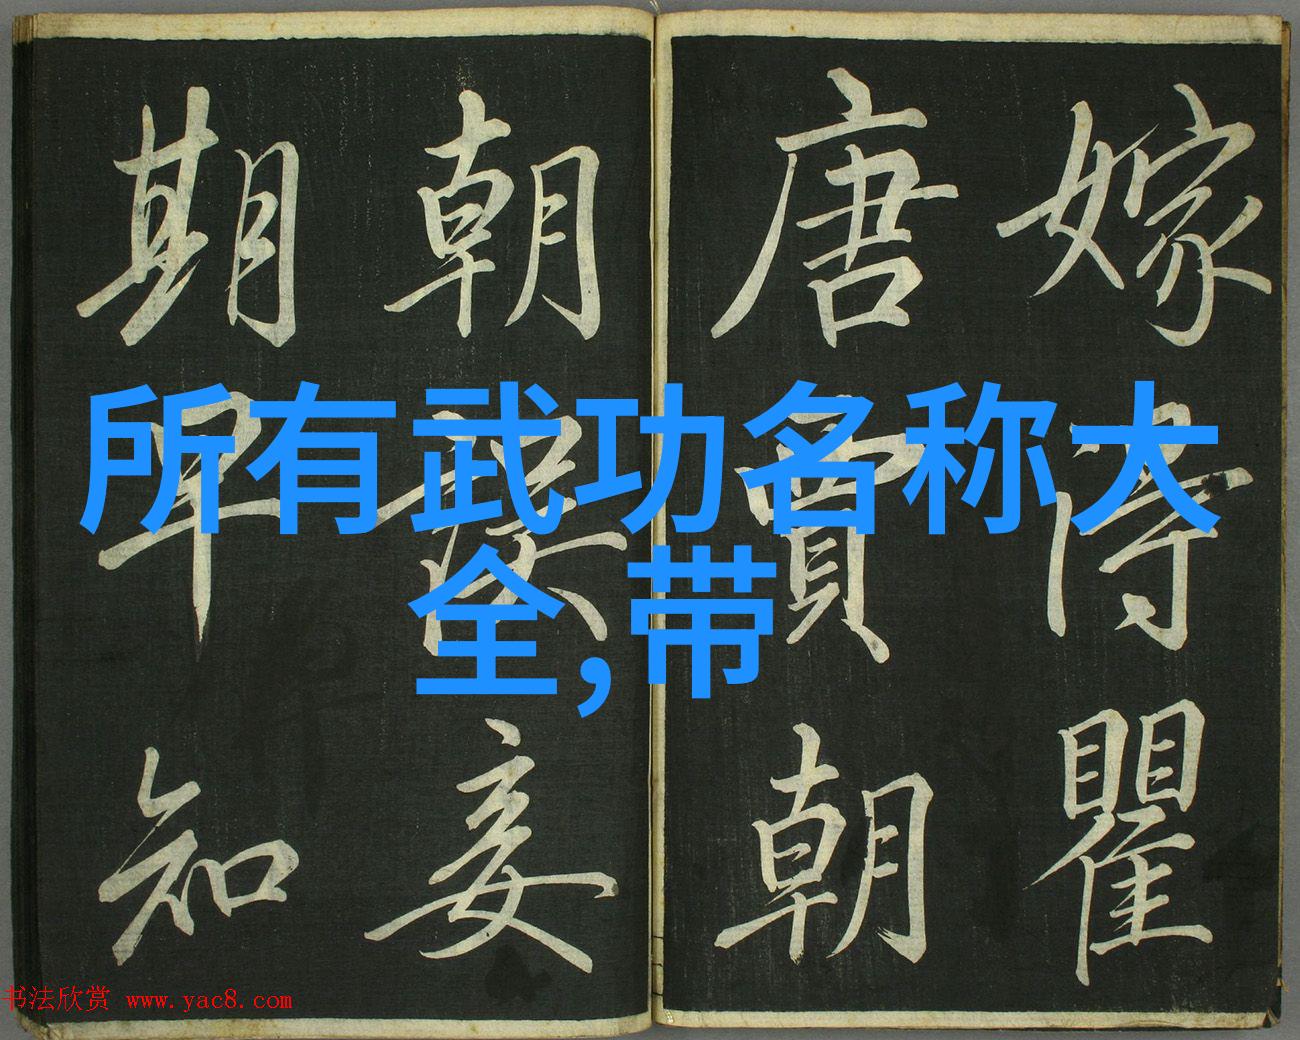 嫁得瞿
唐賈朝
朝誤妾
期早知
所有武功名称大
全,带
书法欣赏 www.yac8.com